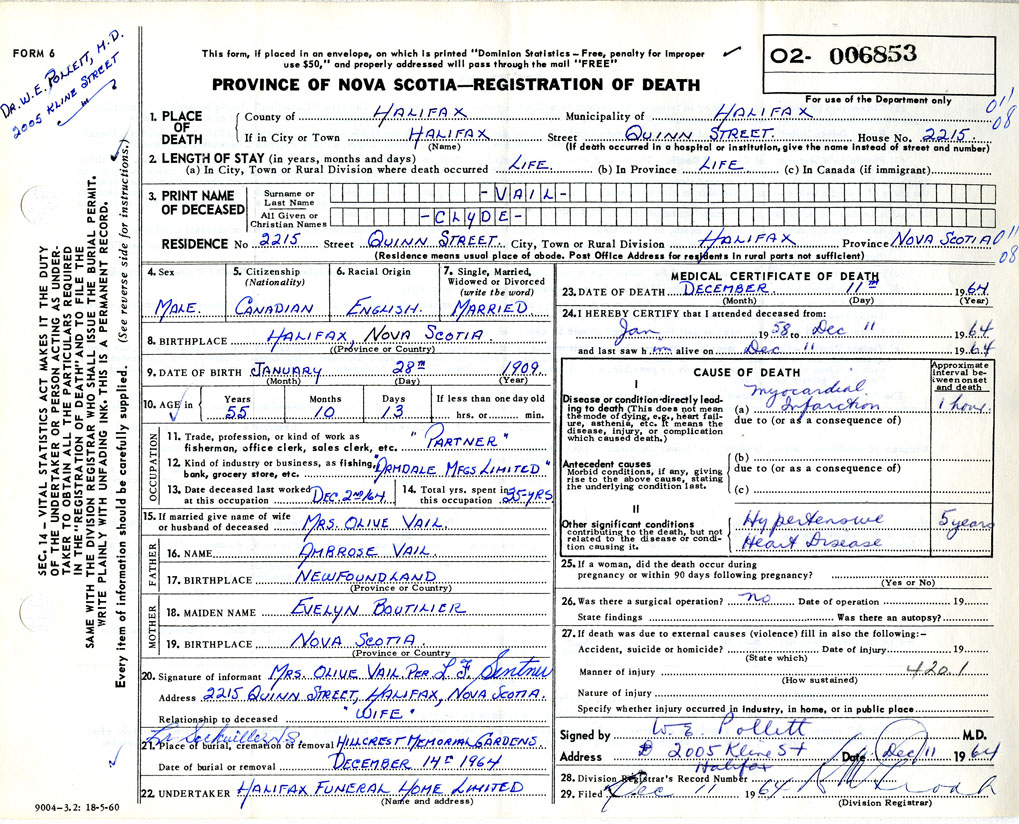 FORM 6
DR. W. E. POLLETT, M.D.
2005 KLINE STREET
This form, if placed in an envelope, on which is printed "Dominion Statistics – Free, penalty for improper
use $50," and properly addressed will pass through the mail "FREE"
PROVINCE OF NOVA SCOTIA—REGISTRATION OF DEATH
O2- 006853
For use of the Department only
011
08
1. PLACE OF DEATH
County of HALIFAX Municipality of HALIFAX
If in City or Town HALIFAX Street QUINN STREET. House No. 2215.
(Name) (If death occurred in a hospital or institution, give the name instead of street and number)
2. LENGTH OF STAY (in years, months and days)
(a) In City, Town or Rural Division where death occurred LIFE. (b) In Province LIFE. (c) In Canada (if immigrant)
3. PRINT NAME OF DECEASED
Surname or Last Name -VAIL-
All Given or Christian Names -CLYDE-
RESIDENCE No 2215 Street QUINN STREET. City, Town or Rural Division HALIFAX Province NOVA SCOTIA 011
08
(Residence means usual place of abode. Post Office Address for residents in rural parts not sufficient)
4. Sex
MALE.
5. Citizenship
(Nationality)
CANADIAN
6. Racial Origin
ENGLISH.
7. Single, Married,
Widowed or Divorced
(write the word)
MARRIED
8. BIRTHPLACE HALIFAX, NOVA SCOTIA.
(Province or Country)
9. DATE OF BIRTH JANUARY 28TH 1909.
(Month) (Day) (Year)
10. AGE in
Years Months Days If less than one day old
55 10 13 hrs. or min.
OCCUPATION
11. Trade, profession, or kind of work as
fisherman, office clerk, sales clerk, etc. "PARTNER"
12. Kind of industry or business, as fishing,
bank, grocery store, etc. "ARMDALE MFGS LIMITED"
13. Date deceased last worked
at this occupation DEC. 2nd/64
14. Total yrs. spent in
this occupation 25-YRS
15. If married give name of wife
or husband of deceased MRS. OLIVE VAIL.
FATHER
16. NAME AMBROSE VAIL.
17. BIRTHPLACE NEWFOUNDLAND
(Province or Country)
MOTHER
18. MAIDEN NAME EVELYN BOUTILIER
19. BIRTHPLACE NOVA SCOTIA.
(Province or Country)
20. Signature of informant MRS. OLIVE VAIL. PER L. F.
Address 2215 QUINN STREET, HALIFAX, NOVA SCOTIA.
Relationship to deceased "WIFE."
21. Place of burial, cremation or removal HILLCREST MEMORIAL GARDENS.
Date of burial or removal DECEMBER 14th 1964
22. UNDERTAKER HALIFAX FUNERAL HOME LIMITED
(Name and address)
9004-3.2: 18-5-60
SEC. 14 – VITAL STATISTICS ACT MAKES IT THE DUTY
OF THE UNDERTAKER OR PERSON ACTING AS UNDER-
TAKER TO OBTAIN ALL THE PARTICULARS REQUIRED
IN THE "REGISTRATION OF DEATH" AND TO FILE THE
SAME WITH THE DIVISION REGISTRAR WHO SHALL ISSUE THE BURIAL PERMIT.
WRITE PLAINLY WITH UNFADING INK. THIS IS A PERMANENT RECORD.
Every item of information should be carefully supplied. (See reverse side for instructions.)
MEDICAL CERTIFICATE OF DEATH
23. DATE OF DEATH DECEMBER 11th 1964
(Month) (Day) (Year)
24. I HEREBY CERTIFY that I attended deceased from:
Jan 1958 to Dec 11 1964
and last saw him alive on Dec 11 1964
CAUSE OF DEATH
Approximate
interval be-
tween onset
and death
I
Disease or condition directly lead-
ing to death (This does not mean
the mode of dying, e.g., heart fail-
ure, asthenia, etc. It means the
disease, injury, or complication
which caused death.)
(a) Myocardial Infarction 1 hour.
due to (or as a consequence of)
Antecedent causes
Morbid conditions, if any, giving
rise to the above cause, stating
the underlying condition last.
(b)
due to (or as a consequence of)
(c)
II
Other significant conditions
contributing to the death, but not
related to the disease or condi-
tion causing it.
Hypertensive 5 years
Heart Disease
25. If a woman, did the death occur during
pregnancy or within 90 days following pregnancy?
(Yes or No)
26. Was there a surgical operation? no Date of operation 19
State findings Was there an autopsy?
27. If death was due to external causes (violence) fill in also the following:–
Accident, suicide or homicide? Date of injury 19
(State which)
Manner of injury 420.1
(How sustained)
Nature of injury
Specify whether injury occurred in industry, in home, or in public place
Signed by W. E. Pollett M.D.
Address 2005 Kline St Date Dec 11 1964
Halifax
28. Division Registrar's Record Number
29. Filed Dec 11 1964
(Division Registrar)